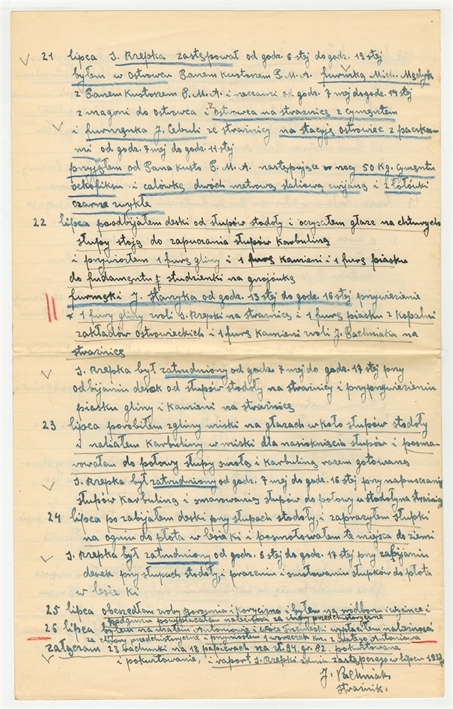 21 lipca J. Rzepka zastępował od godz 6 stej do godz. 19 stej
byłem w Ostrowcu Panem Kustoszem P.M.A. furmką Mich. Mądzik
z Panem Kustoszem P.M.A. i rzeczami od godz. 7 mej do godz. 19 stej
z magoni do Ostrowca i z Ostrowca na strażnicę z cymentem
i furmanka J. Cebuli ze strażnicy na stację Ostrowiec z paczka-
mi od godz. 7 mej do godz 11 stej
przyjąłem od Pana Kusto P.M.A. następujące rzeczy 50 Kg. cymentu
i calówkę dwóch metrową stalową zwijaną i 2 ołówki
czarne zwykłe
22 lipca poodbijałem deski od słupów stodoły i oczyściłem głaze na których
słupy stoją do zapuszania słupów Karbuliną
i przywiozłem 1 furę gliny i 1 furę kamieni i 1 furę piasku
do fundamentu i studzienki na gnojówkę
furmanki J. Harzyka od godz. 13 stej do godz. 16 stej przywiezienie
1 fury gliny z roli J. Rzepki na strażnicę i 1 furę piasku z Kopalni
zakładów Ostrowieckich i 1 furę Kamieni z roli J. Pachniaka na
strażnicę
J. Rzepka był zatrudniony od godz. 7 mej do godz. 17 stej przy
odbijaniu desek od słupów stodoły na strażnicy i przy przywiezieniu
piasku gliny i kamieni na strażnicę
23 lipca porobiłem z gliny miski na głazach w koło słupów stodoły
i nalałem Karbuliny w miski dla nasioknięcia słupów i posma-
rowałem do połowy słupy smołą i Karbuliną razem gotowaną
J. Rzepka był zatrudniony od godz. 7 mej do godz. 16 stej przy napuszczaniu
słupów Karbuliną i smarowaniu słupów do połowy w stodole na strażnicy
24 lipca po zabijałem deski przy słupach stodoły i zaprażyłem słupki
na ogniu do płota w lasku i posmołowałem te miejsca do ziemi
J. Rzepka był zatrudniony od godz. 6 stej do godz. 17 stej przy zabijaniu
desek przy słupach stodoły i prażeniu i smołowaniu słupków do płota
w lasku
25 lipca obszedłem
26 lipca
załączam 23 Rachunki na 18 papierach na zł. 94. gr. 82. pokwitowane
i pokwitowania, i raport J. Rzepki z dnia zastępczego w lipcu 1937
J. Pachniak
Strażnik.